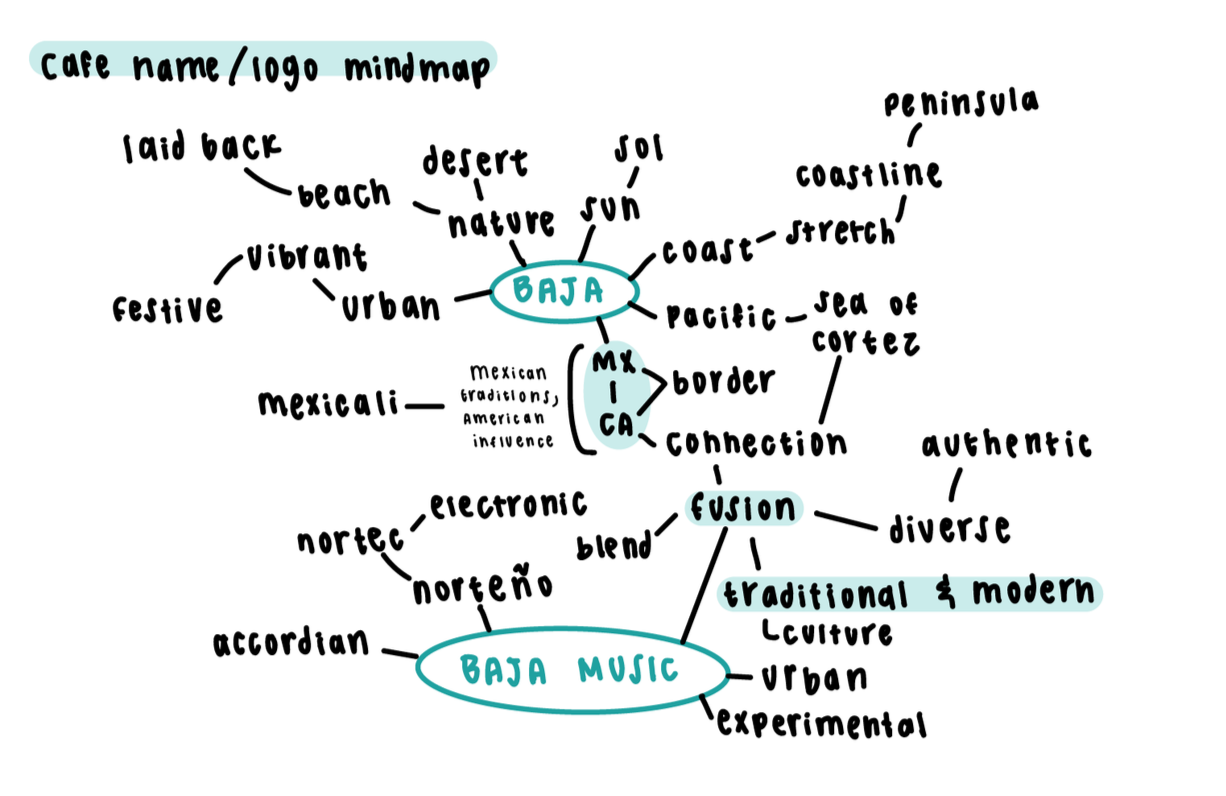 cafe name/logo mindmap
peninsula
laid back
desert
sol
coastline
beach
nature
sun
stretch
coast
vibrant
festive
urban
BAJA
pacific
sea of
cortez
MX
CA
border
mexican
traditions,
American
influence
mexicali
connection
authentic
electronic
fusion
diverse
nortec
blend
norteño
traditional & modern
culture
accordian
BAJA MUSIC
urban
experimental